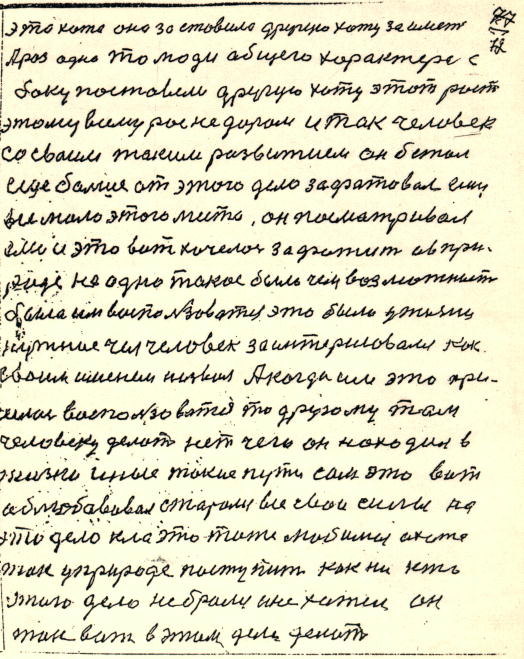 77
12
это хата она заставила другую хату заимет
Араз одно то люди абщего характера с
боку поставели другую хату этот рост
этому всему рос не даром и так человек
со сваим таким развитием он бежал
еще больше от этого дело зафатовал ему
вимало этого места, он посматривал
и это вот хочелос зафатит авпри-
роде не одно такое было чем возможност
была им воспользоватся это было ужизни
нужное чем человек заинтерисовался как
сваим именем назвал А когда им это при-
шлос воспользоватся то другому там
человеку делат нет чего он находил в
жизни иные такие пути сам это вот
аблюбавовал старался все свои силы на
это дело кла это тоже любимая ахота
так уприроде поступит как ни ест
этаго дело небрался не хател он
так вот в этом деле делат